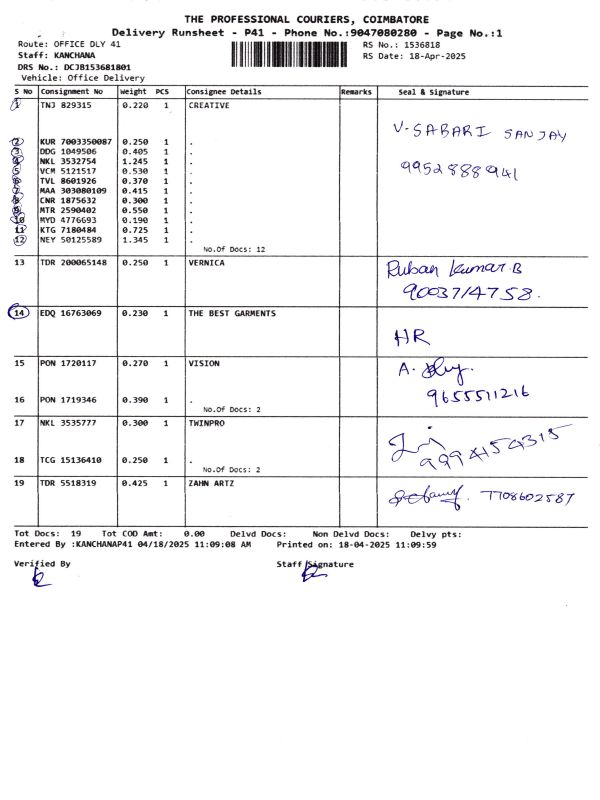 THE PROFESSIONAL COURIERS, COIMBATORE
Delivery Runsheet - P41 - Phone No.:9047080280 - Page No.:1
Route: OFFICE DLY 41
RS No.: 1536818
Staff: KANCHANA
RS Date: 18-Apr-2025
DRS No.: DCJB153681801
Vehicle: Office Delivery
S No Consignment No Weight PCS Consignee Details Remarks Seal & Signature
1 TNJ 829315 0.220 1 CREATIVE
V-SABARI SANJAY
2 KUR 7003350087 0.250 1 .
3 DDG 1049506 0.405 1 .
4 NKL 3532754 1.245 1 .
5 VCM 5121517 0.530 1 .
9952888941
6 TVL 8601926 0.370 1 .
7 MAA 303080109 0.415 1 .
8 CNR 1875632 0.300 1 .
9 MTR 2590402 0.550 1 .
10 MYD 4776693 0.190 1 .
11 KTG 7180484 0.725 1 .
12 NEY 50125589 1.345 1 .
No.Of Docs: 12
13 TDR 200065148 0.250 1 VERNICA
Ruban Kumar.B
9003714758.
14 EDQ 16763069 0.230 1 THE BEST GARMENTS
HR
15 PON 1720117 0.270 1 VISION
A.
9655511216
16 PON 1719346 0.390 1 .
No.Of Docs: 2
17 NKL 3535777 0.300 1 TWINPRO
9994154315
18 TCG 15136410 0.250 1 .
No.Of Docs: 2
19 TDR 5518319 0.425 1 ZAHN ARTZ
7708602587
Tot Docs: 19 Tot COD Amt: 0.00 Delvd Docs: Non Delvd Docs: Delvy pts:
Entered By :KANCHANAP41 04/18/2025 11:09:08 AM Printed on: 18-04-2025 11:09:59
Verified By Staff Signature